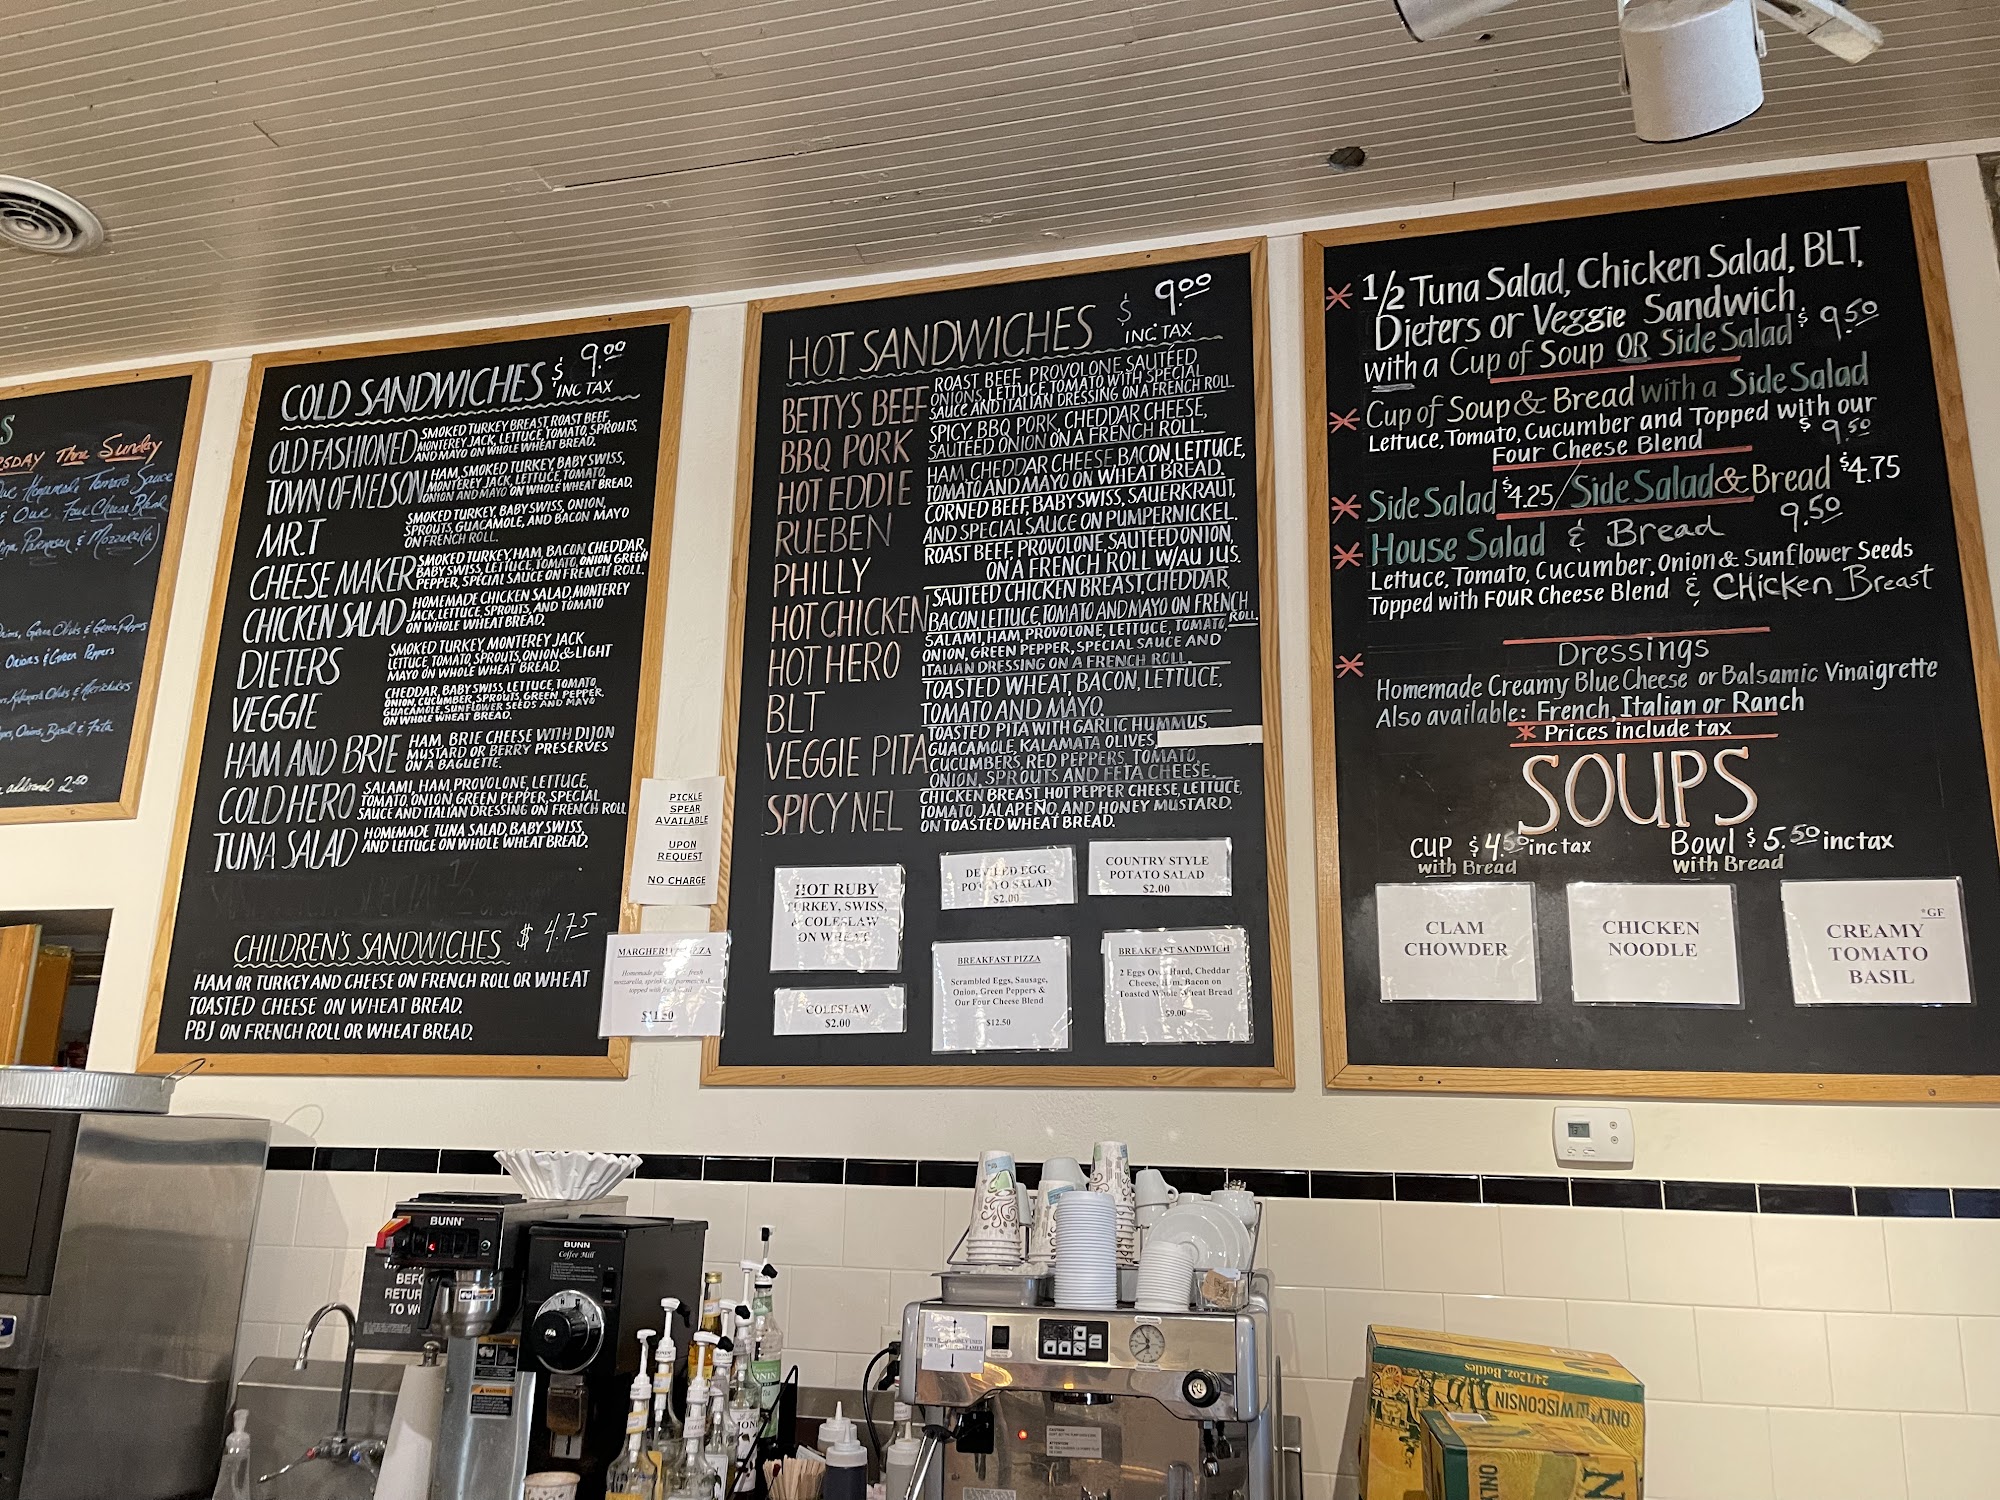 S
RSDAY Thru Sunday
Our Homemade Tomato Sauce
& Our Four Cheese Blend
Parmesan & Mozzarella)
Green Olives & Green Peppers
Onions & Green Peppers
Kalamata Olives & Artichokes
Onions, Basil & Feta
additional 2.50
COLD SANDWICHES $ 9.00
INC TAX
OLD FASHIONED SMOKED TURKEY BREAST, ROAST BEEF,
MONTEREY JACK, LETTUCE, TOMATO, SPROUTS
AND MAYO ON WHOLE WHEAT BREAD.
TOWN OF NELSON HAM, SMOKED TURKEY, BABY SWISS,
MONTEREY JACK, LETTUCE, TOMATO,
ONION AND MAYO ON WHOLE WHEAT BREAD.
MR.T SMOKED TURKEY, BABY SWISS, ONION,
SPROUTS, GUACAMOLE, AND BACON MAYO
ON FRENCH ROLL.
CHEESE MAKER SMOKED TURKEY, HAM, BACON, CHEDDAR,
BABY SWISS, LETTUCE, TOMATO, ONION, GREEN
PEPPER, SPECIAL SAUCE ON FRENCH ROLL.
CHICKEN SALAD HOMEMADE CHICKEN SALAD, MONTEREY
JACK, LETTUCE, SPROUTS, AND TOMATO
ON WHOLE WHEAT BREAD.
DIETERS SMOKED TURKEY, MONTEREY JACK
LETTUCE, TOMATO, SPROUTS, ONION & LIGHT
MAYO ON WHOLE WHEAT BREAD.
VEGGIE CHEDDAR, BABY SWISS, LETTUCE, TOMATO,
ONION, CUCUMBER, SPROUTS, GREEN PEPPER,
GUACAMOLE, SUNFLOWER SEEDS AND MAYO
ON WHOLE WHEAT BREAD.
HAM AND BRIE HAM, BRIE CHEESE WITH DIJON
MUSTARD OR BERRY PRESERVES
ON A BAGUETTE.
COLD HERO SALAMI, HAM, PROVOLONE, LETTUCE,
TOMATO, ONION, GREEN PEPPER, SPECIAL
SAUCE AND ITALIAN DRESSING ON FRENCH ROLL
TUNA SALAD HOMEMADE TUNA SALAD, BABY SWISS,
AND LETTUCE ON WHOLE WHEAT BREAD.
CHILDREN'S SANDWICHES $ 4.75
HAM OR TURKEY AND CHEESE ON FRENCH ROLL OR WHEAT
TOASTED CHEESE ON WHEAT BREAD.
PBJ ON FRENCH ROLL OR WHEAT BREAD.
PICKLE
SPEAR
AVAILABLE
UPON
REQUEST
NO CHARGE
MARGHERITA PIZZA
Homemade pizza fresh
mozzarella, sprinkle of parmesan &
topped with fresh basil
$11.50
HOT SANDWICHES $ 9.00
INC. TAX
BETTY'S BEEF ROAST BEEF, PROVOLONE, SAUTÉED
ONIONS, LETTUCE, TOMATO WITH SPECIAL
SAUCE AND ITALIAN DRESSING ON A FRENCH ROLL.
BBQ PORK SPICY, BBQ PORK, CHEDDAR CHEESE,
SAUTÉED ONION ON A FRENCH ROLL.
HOT EDDIE HAM, CHEDDAR CHEESE BACON, LETTUCE,
TOMATO AND MAYO ON WHEAT BREAD.
RUEBEN CORNED BEEF, BABY SWISS, SAUERKRAUT,
AND SPECIAL SAUCE ON PUMPERNICKEL.
PHILLY ROAST BEEF, PROVOLONE, SAUTEED ONION,
ON A FRENCH ROLL W/AU JUS.
HOT CHICKEN SAUTÉED CHICKEN BREAST, CHEDDAR,
BACON, LETTUCE, TOMATO AND MAYO ON FRENCH ROLL.
HOT HERO SALAMI, HAM, PROVOLONE, LETTUCE, TOMATO,
ONION, GREEN PEPPER, SPECIAL SAUCE AND
ITALIAN DRESSING ON A FRENCH ROLL.
BLT TOASTED WHEAT, BACON, LETTUCE,
TOMATO AND MAYO.
VEGGIE PITA TOASTED PITA WITH GARLIC HUMMUS,
GUACAMOLE, KALAMATA OLIVES,
CUCUMBERS, RED PEPPERS, TOMATO,
ONION, SPROUTS AND FETA CHEESE.
SPICY NEL CHICKEN BREAST HOT PEPPER CHEESE, LETTUCE,
TOMATO, JALAPEÑO, AND HONEY MUSTARD.
ON TOASTED WHEAT BREAD.
HOT RUBY
TURKEY, SWISS,
& COLESLAW
ON WHEAT
DEVILED EGG
POTATO SALAD
$2.00
COUNTRY STYLE
POTATO SALAD
$2.00
COLESLAW
$2.00
BREAKFAST PIZZA
Scrambled Eggs, Sausage,
Onion, Green Peppers &
Our Four Cheese Blend
$12.50
BREAKFAST SANDWICH
2 Eggs Over Hard, Cheddar
Cheese, Ham, Bacon on
Toasted Whole Wheat Bread
$9.00
* 1/2 Tuna Salad, Chicken Salad, BLT,
Dieters or Veggie Sandwich
with a Cup of Soup OR Side Salad $ 9.50
* Cup of Soup & Bread with a Side Salad
Lettuce, Tomato, Cucumber and Topped with our
Four Cheese Blend $ 9.50
* Side Salad $4.25 / Side Salad & Bread $4.75
* House Salad & Bread 9.50
Lettuce, Tomato, Cucumber, Onion & Sunflower Seeds
Topped with FOUR Cheese Blend & CHicken Breast
* Dressings
Homemade Creamy Blue Cheese or Balsamic Vinaigrette
Also available: French, Italian or Ranch
* Prices include tax
SOUPS
CUP $4.50 inc tax
with Bread
Bowl $5.50 inc tax
with Bread
CLAM
CHOWDER
CHICKEN
NOODLE
*GF
CREAMY
TOMATO
BASIL
BUNN
BUNN
Coffee Mill
BEFO
RETUR
TO WO
24/12oz. Bottles
ONLY IN WISCONSIN
ONLY
N